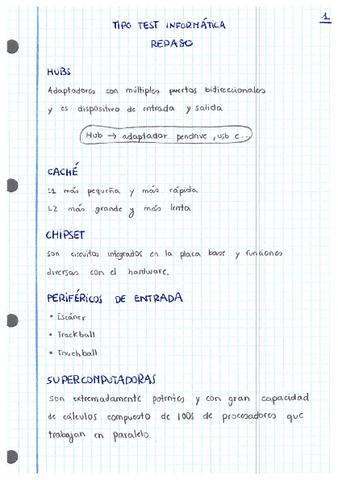 1
TIPO TEST INFORMÁTICA
REPASO
HUBS
Adaptadores con múltiples puertos bidireccionales
y es dispositivo de entrada y salida
Hub → adaptador pendrive, usb e...
CACHÉ
L1 más pequeña y más rápida
L2 más grande y más lenta
CHIPSET
Son circuitos integrados en la placa base y funciones
diversas con el hardware.
PERIFÉRICOS DE ENTRADA
• Escáner
• Trackball
• Touchball
SUPERCOMPUTADORAS
Son extremadamente potentes y con gran capacidad
de cálculos compuesto de 100s de procesadores que
trabajan en paralelo.